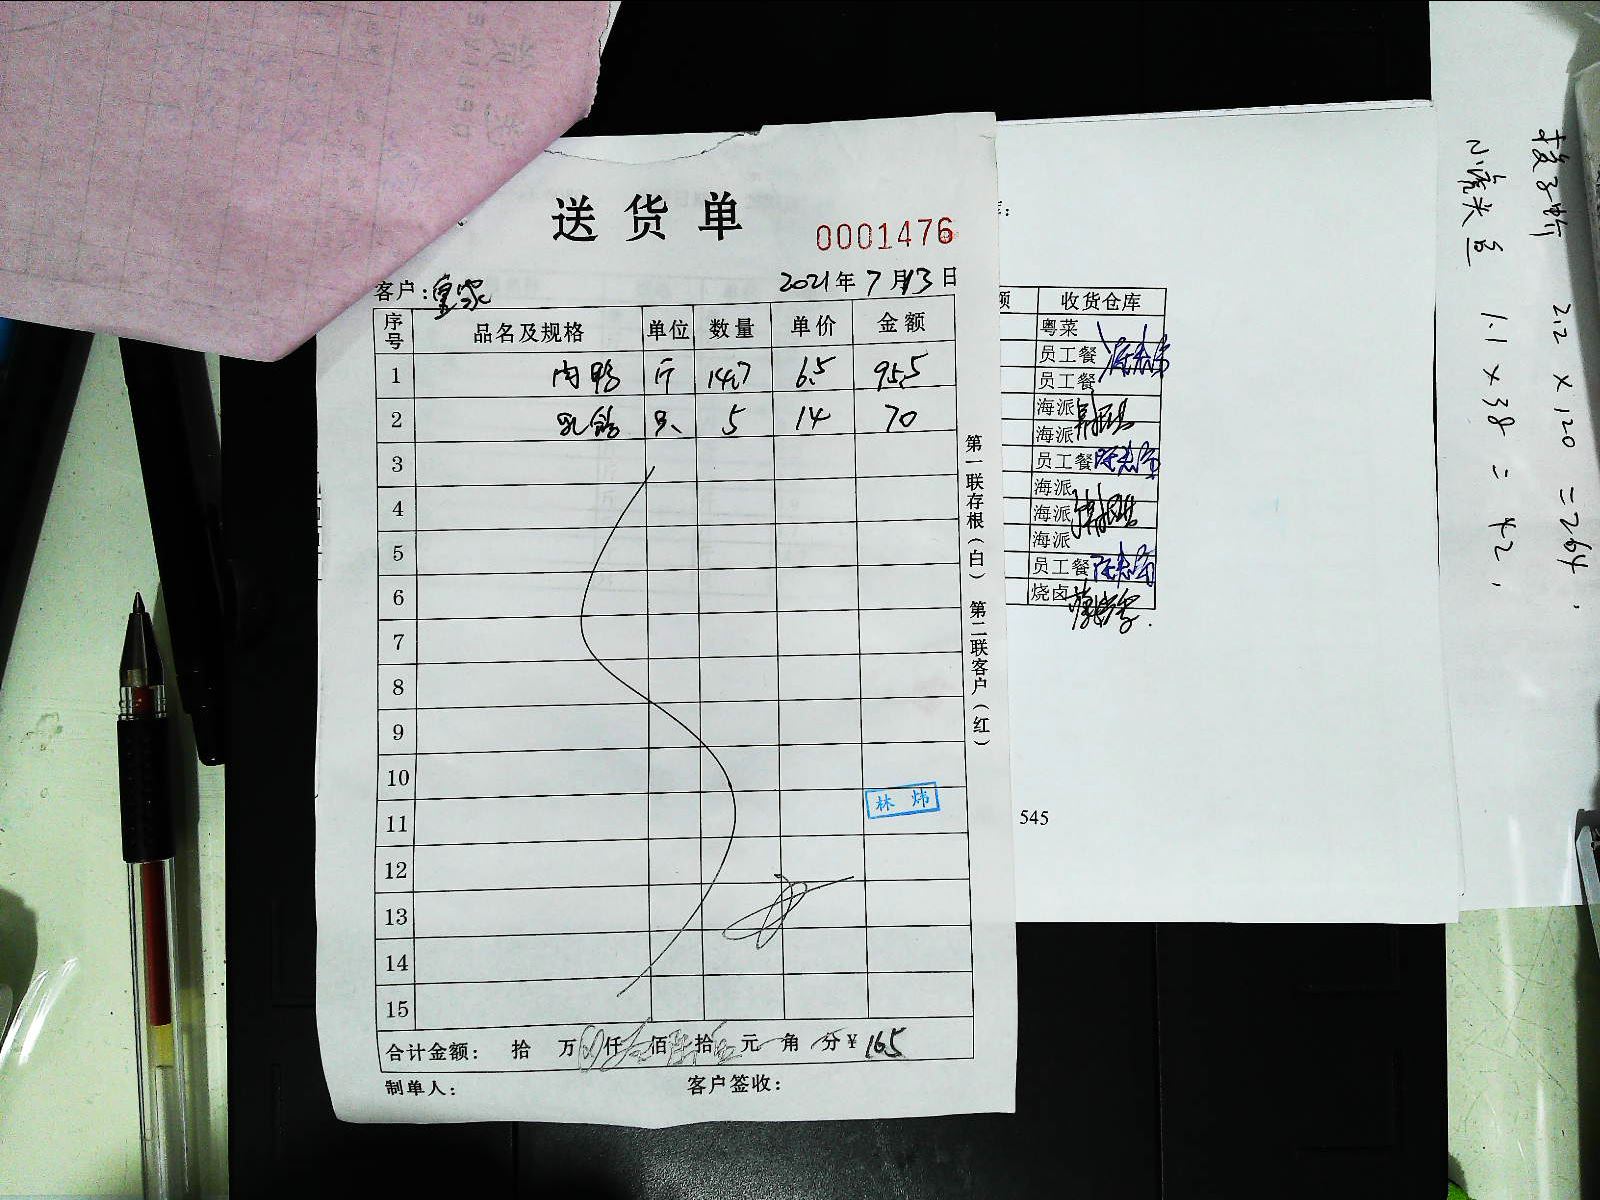 送货单
0001476
客户：皇家 2021年7月13日
序号 品名及规格 单位 数量 单价 金额
1 肉鸭 斤 14.7 6.5 95.5
2 乳鸽 只 5 14 70
3
4
5
6
7
8
9
10
11
12
13
14
15
林炜
合计金额： 拾 万 仟 壹佰陆拾伍元 角 分￥165
制单人： 客户签收：
第一联存根（白） 第二联客户（红）
额 收货仓库
粤菜
员工餐
员工餐
海派
海派
员工餐
海派
海派
海派
员工餐
烧卤
545
2.2×120=264.
小虎头鱼 1.1×38=42.